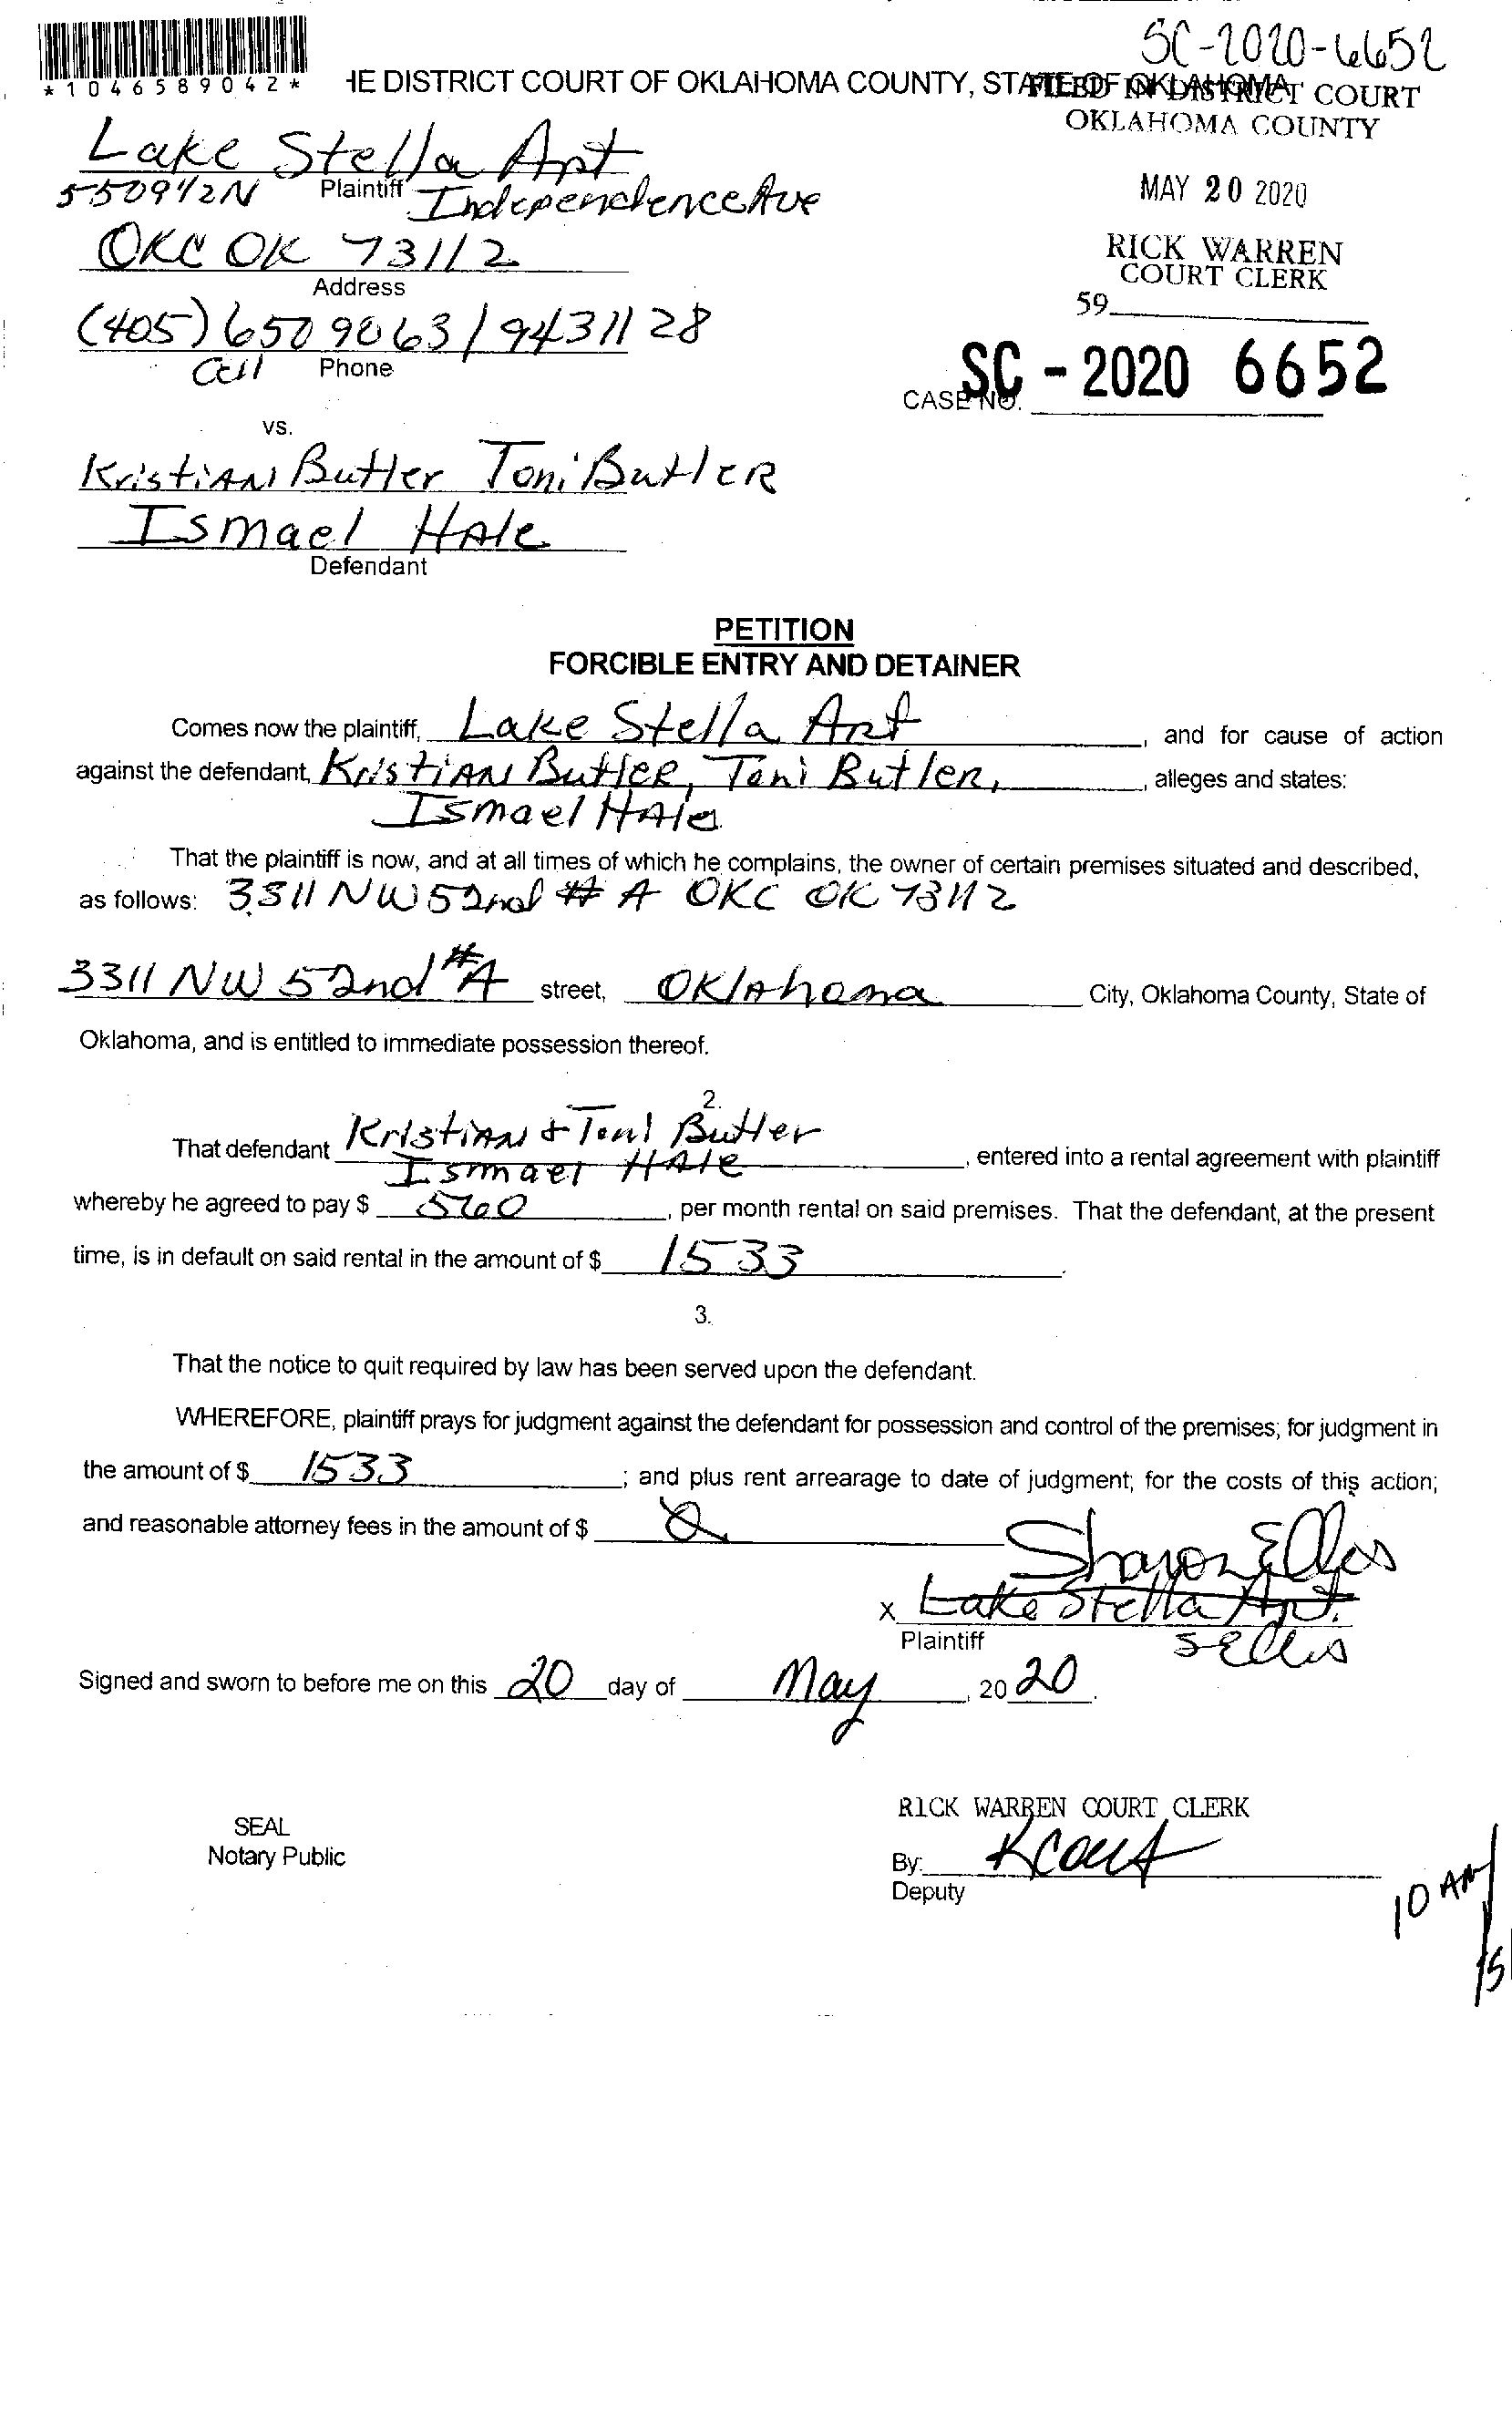 SC-2020-6652
*1046589042*
HE DISTRICT COURT OF OKLAHOMA COUNTY, STATE OF OKLAHOMA
FILED IN DISTRICT COURT
OKLAHOMA COUNTY
Lake Stella Apt
Plaintiff
5509 1/2 N Independence Ave
MAY 20 2020
OKC OK 73112
Address
RICK WARREN
COURT CLERK
59
(405) 650 9063 / 9431128
Cell Phone
CASE NO. SC - 2020 6652
vs.
Kristian Butler Toni Butler
Ismael Hale
Defendant
PETITION
FORCIBLE ENTRY AND DETAINER
Comes now the plaintiff, Lake Stella Apt, and for cause of action
against the defendant, Kristian Butler, Toni Butler, alleges and states:
Ismael Hale
That the plaintiff is now, and at all times of which he complains, the owner of certain premises situated and described,
as follows: 3311 NW 52nd # A OKC OK 73112
3311 NW 52nd #A street, Oklahoma City, Oklahoma County, State of
Oklahoma, and is entitled to immediate possession thereof.
2.
That defendant Kristian + Toni Butler
Ismael Hale, entered into a rental agreement with plaintiff
whereby he agreed to pay $ 560, per month rental on said premises. That the defendant, at the present
time, is in default on said rental in the amount of $ 1533.
3.
That the notice to quit required by law has been served upon the defendant.
WHEREFORE, plaintiff prays for judgment against the defendant for possession and control of the premises; for judgment in
the amount of $ 1533; and plus rent arrearage to date of judgment; for the costs of this action;
and reasonable attorney fees in the amount of $
Sharon Ellis
x Lake Stella Apt.
Plaintiff
SEllis
Signed and sworn to before me on this 20 day of May, 2020.
RICK WARREN COURT CLERK
SEAL
Notary Public
By:
Deputy
10 AM